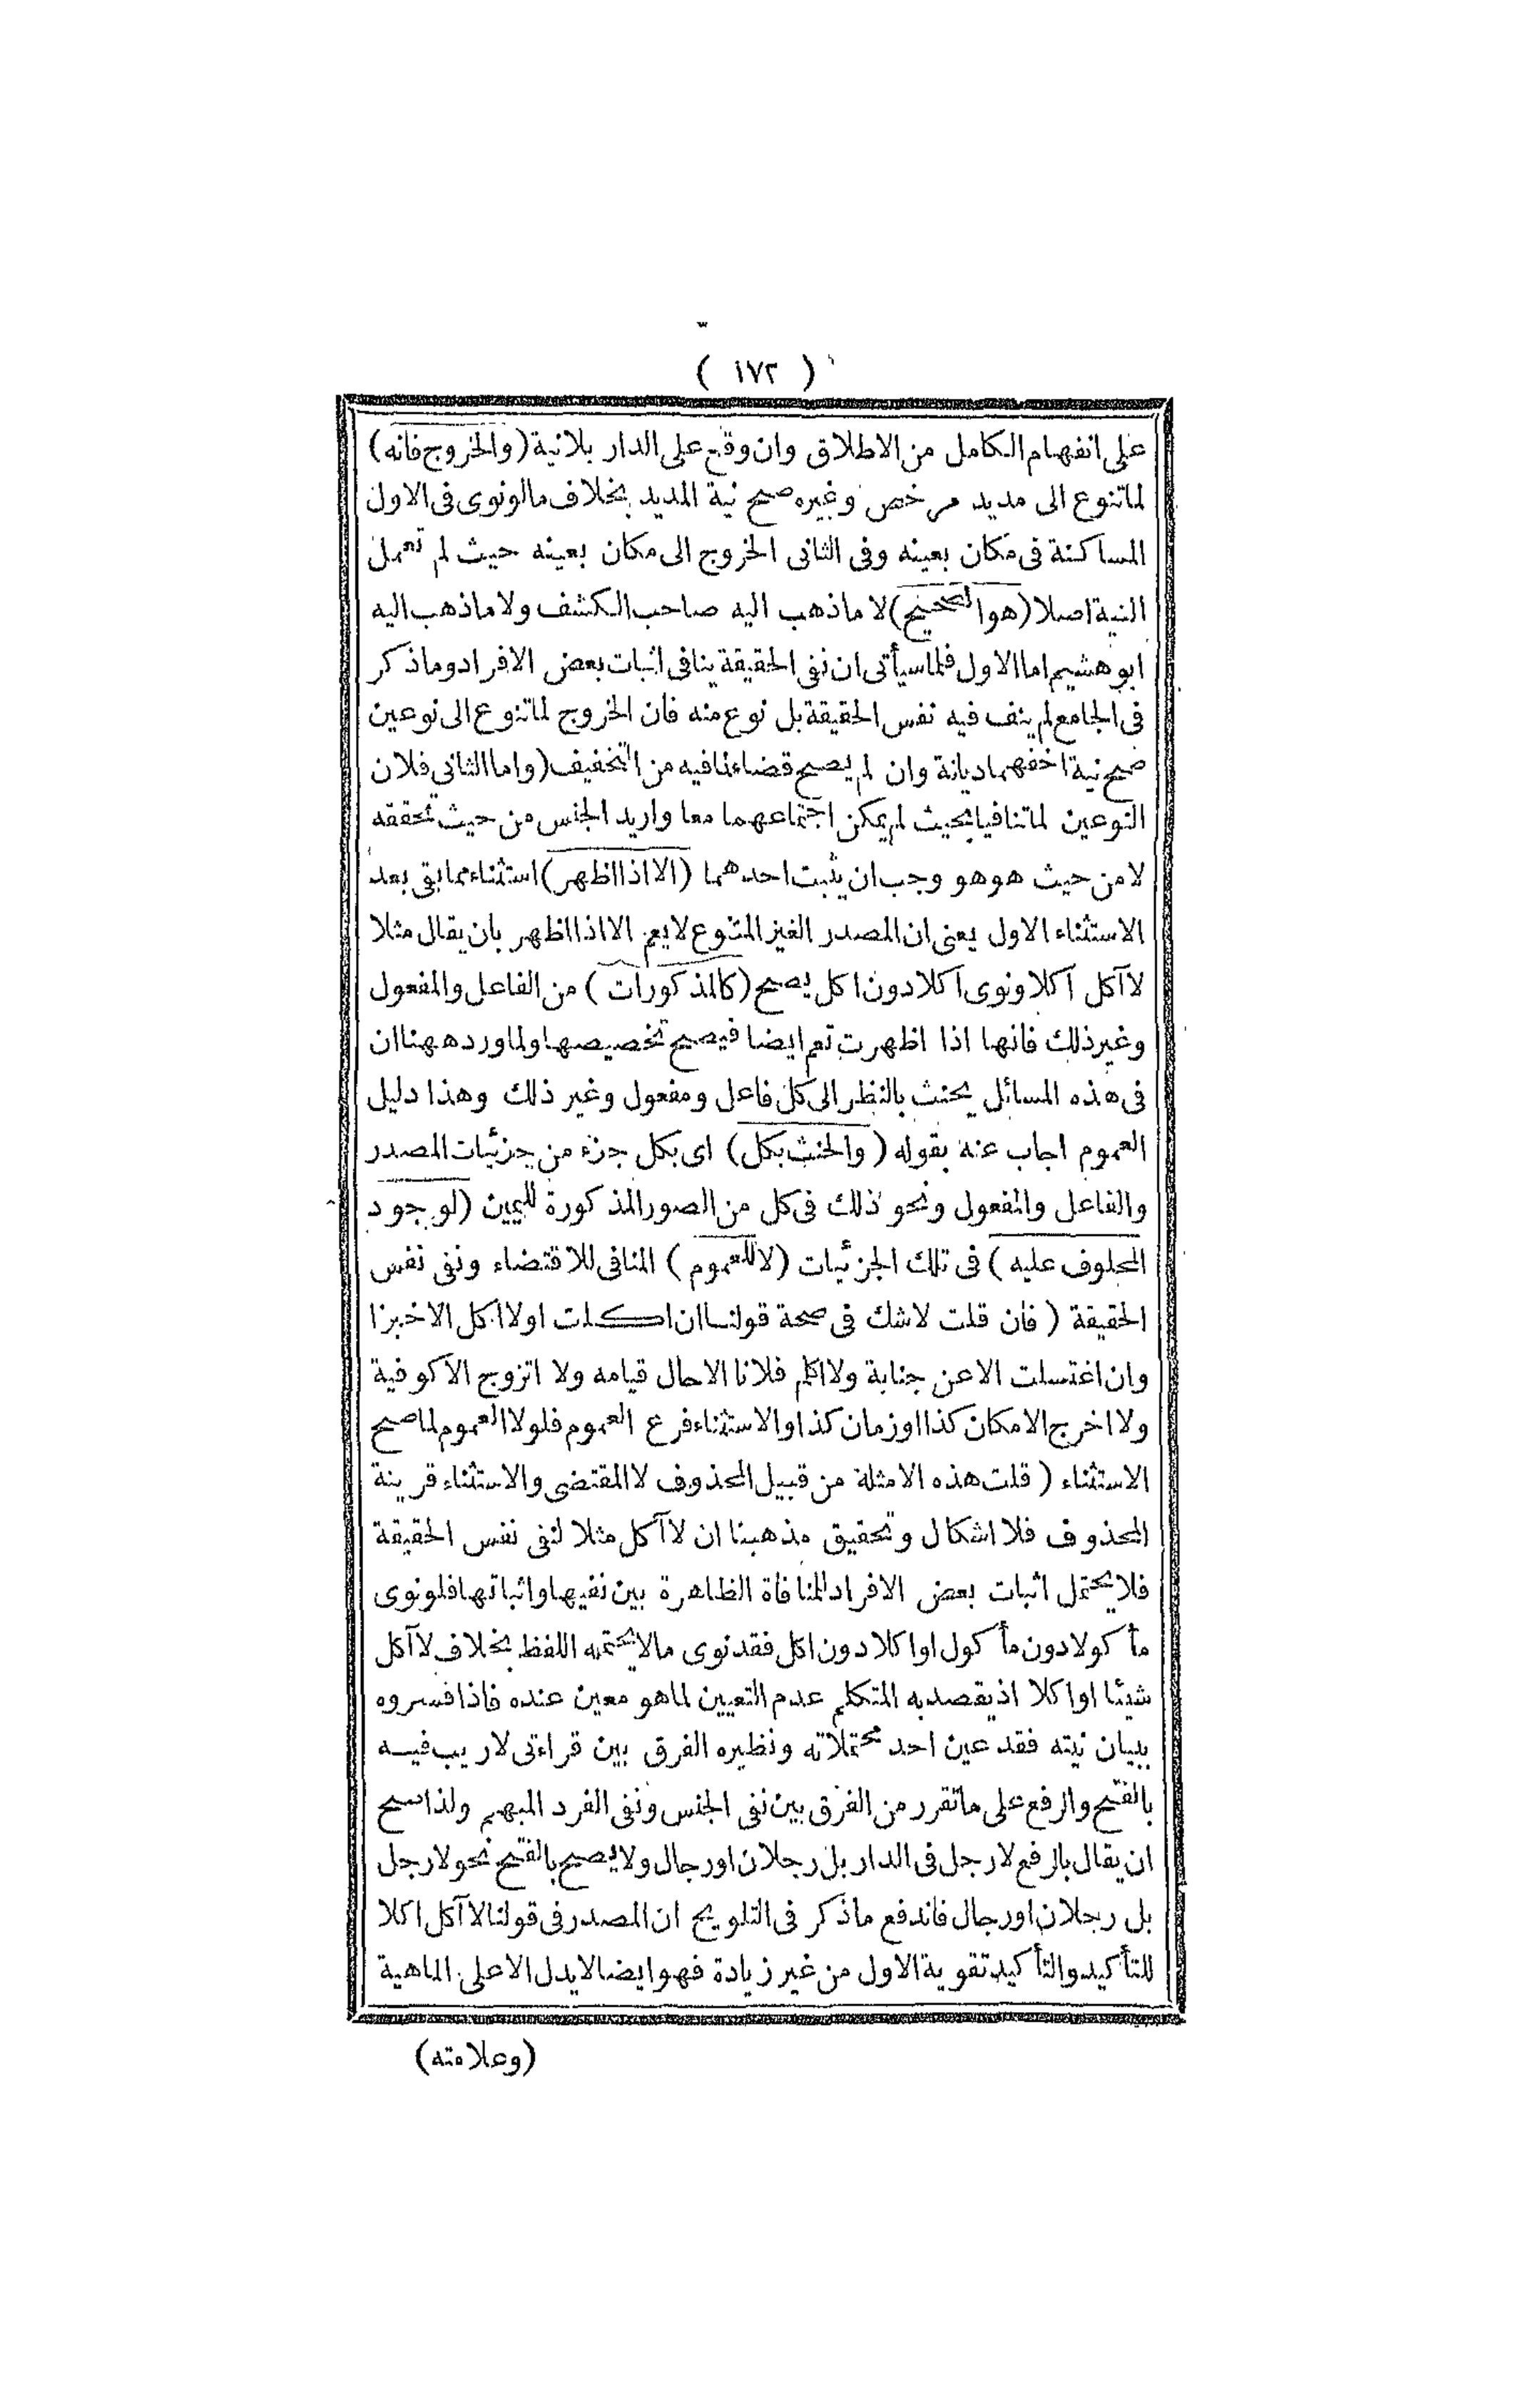 ( ١٧٢ )
على انفهام الكامل من الاطلاق وان وقع على الدار بلانية (والخروج فانه)
لما تنوع الى مديد مرخص وغيره صح نية المديد بخلاف ما لو نوى فى الاول
المساكنة فى مكان بعينه وفى الثانى الخروج الى مكان بعينه حيث لم تعمل
النية اصلا (هو الصحيح) لا ما ذهب اليه صاحب الكشف ولا ما ذهب اليه
ابو هشيم اما الاول فلما سيأتى ان نفى الحقيقة ينافى اثبات بعض الافراد وما ذكر
فى الجامع لم ينف فيه نفس الحقيقة بل نوع منه فان الخروج لما تنوع الى نوعين
صح نية اخفهما ديانة وان لم يصح قضاء لما فيه من التخفيف (واما الثانى فلان
النوعين لما تنافيا بحيث لم يمكن اجتماعهما معا واريد الجنس من حيث تحققه
لا من حيث هو هو وجب ان يثبت احدهما (الا اذا اظهر) استثناء مما بقى بعد
الاستثناء الاول يعنى ان المصدر الغير المتنوع لا يعم الا اذا اظهر بان يقال مثلا
لا آكل اكلا ونوى اكلا دون اكل يصح (كالمذكورات) من الفاعل والمفعول
وغير ذلك فانها اذا اظهرت تعم ايضا فيصح تخصيصها ولما ورد ههنا ان
فى هذه المسائل يحنث بالنظر الى كل فاعل ومفعول وغير ذلك وهذا دليل
العموم اجاب عنه بقوله (والحنث بكل) اى بكل جزء من جزئيات المصدر
والفاعل والمفعول ونحو ذلك فى كل من الصور المذكورة لليمين (لوجود
المحلوف عليه) فى تلك الجزئيات (لا للعموم) المنافى للاقتضاء ونفى نفس
الحقيقة (فان قلت لا شك فى صحة قولنا ان اكلت او لا اكل الا خبزا
وان اغتسلت الا عن جنابة ولا اكلم فلانا الا حال قيامه ولا اتزوج الا كوفية
ولا اخرج الا مكان كذا او زمان كذا والاستثناء فرع العموم فلولا العموم لما صح
الاستثناء (قلت هذه الامثلة من قبيل المحذوف لا المقتضى والاستثناء قرينة
المحذوف فلا اشكال وتحقيق مذهبنا ان لا آكل مثلا لنفى نفس الحقيقة
فلا يحتمل اثبات بعض الافراد للمنافاة الظاهرة بين نفيها واثباتها فلو نوى
مأكولا دون مأكول او اكلا دون اكل فقد نوى ما لا يحتمله اللفظ بخلاف لا آكل
شيئا او اكلا اذ يقصد به المتكلم عدم التعيين لما هو معين عنده فاذا فسروه
ببيان نيته فقد عين احد محتملاته ونظيره الفرق بين قراءتى لا ريب فيه
بالفتح والرفع على ما تقرر من الفرق بين نفى الجنس ونفى الفرد المبهم ولذا صح
ان يقال بالرفع لا رجل فى الدار بل رجلان او رجال ولا يصح بالفتح نحو لا رجل
بل رجلان او رجال فاندفع ما ذكر فى التلويح ان المصدر فى قولنا لا آكل اكلا
للتأكيد والتأكيد تقوية الاول من غير زيادة فهو ايضا لا يدل الا على الماهية
(وعلامته)